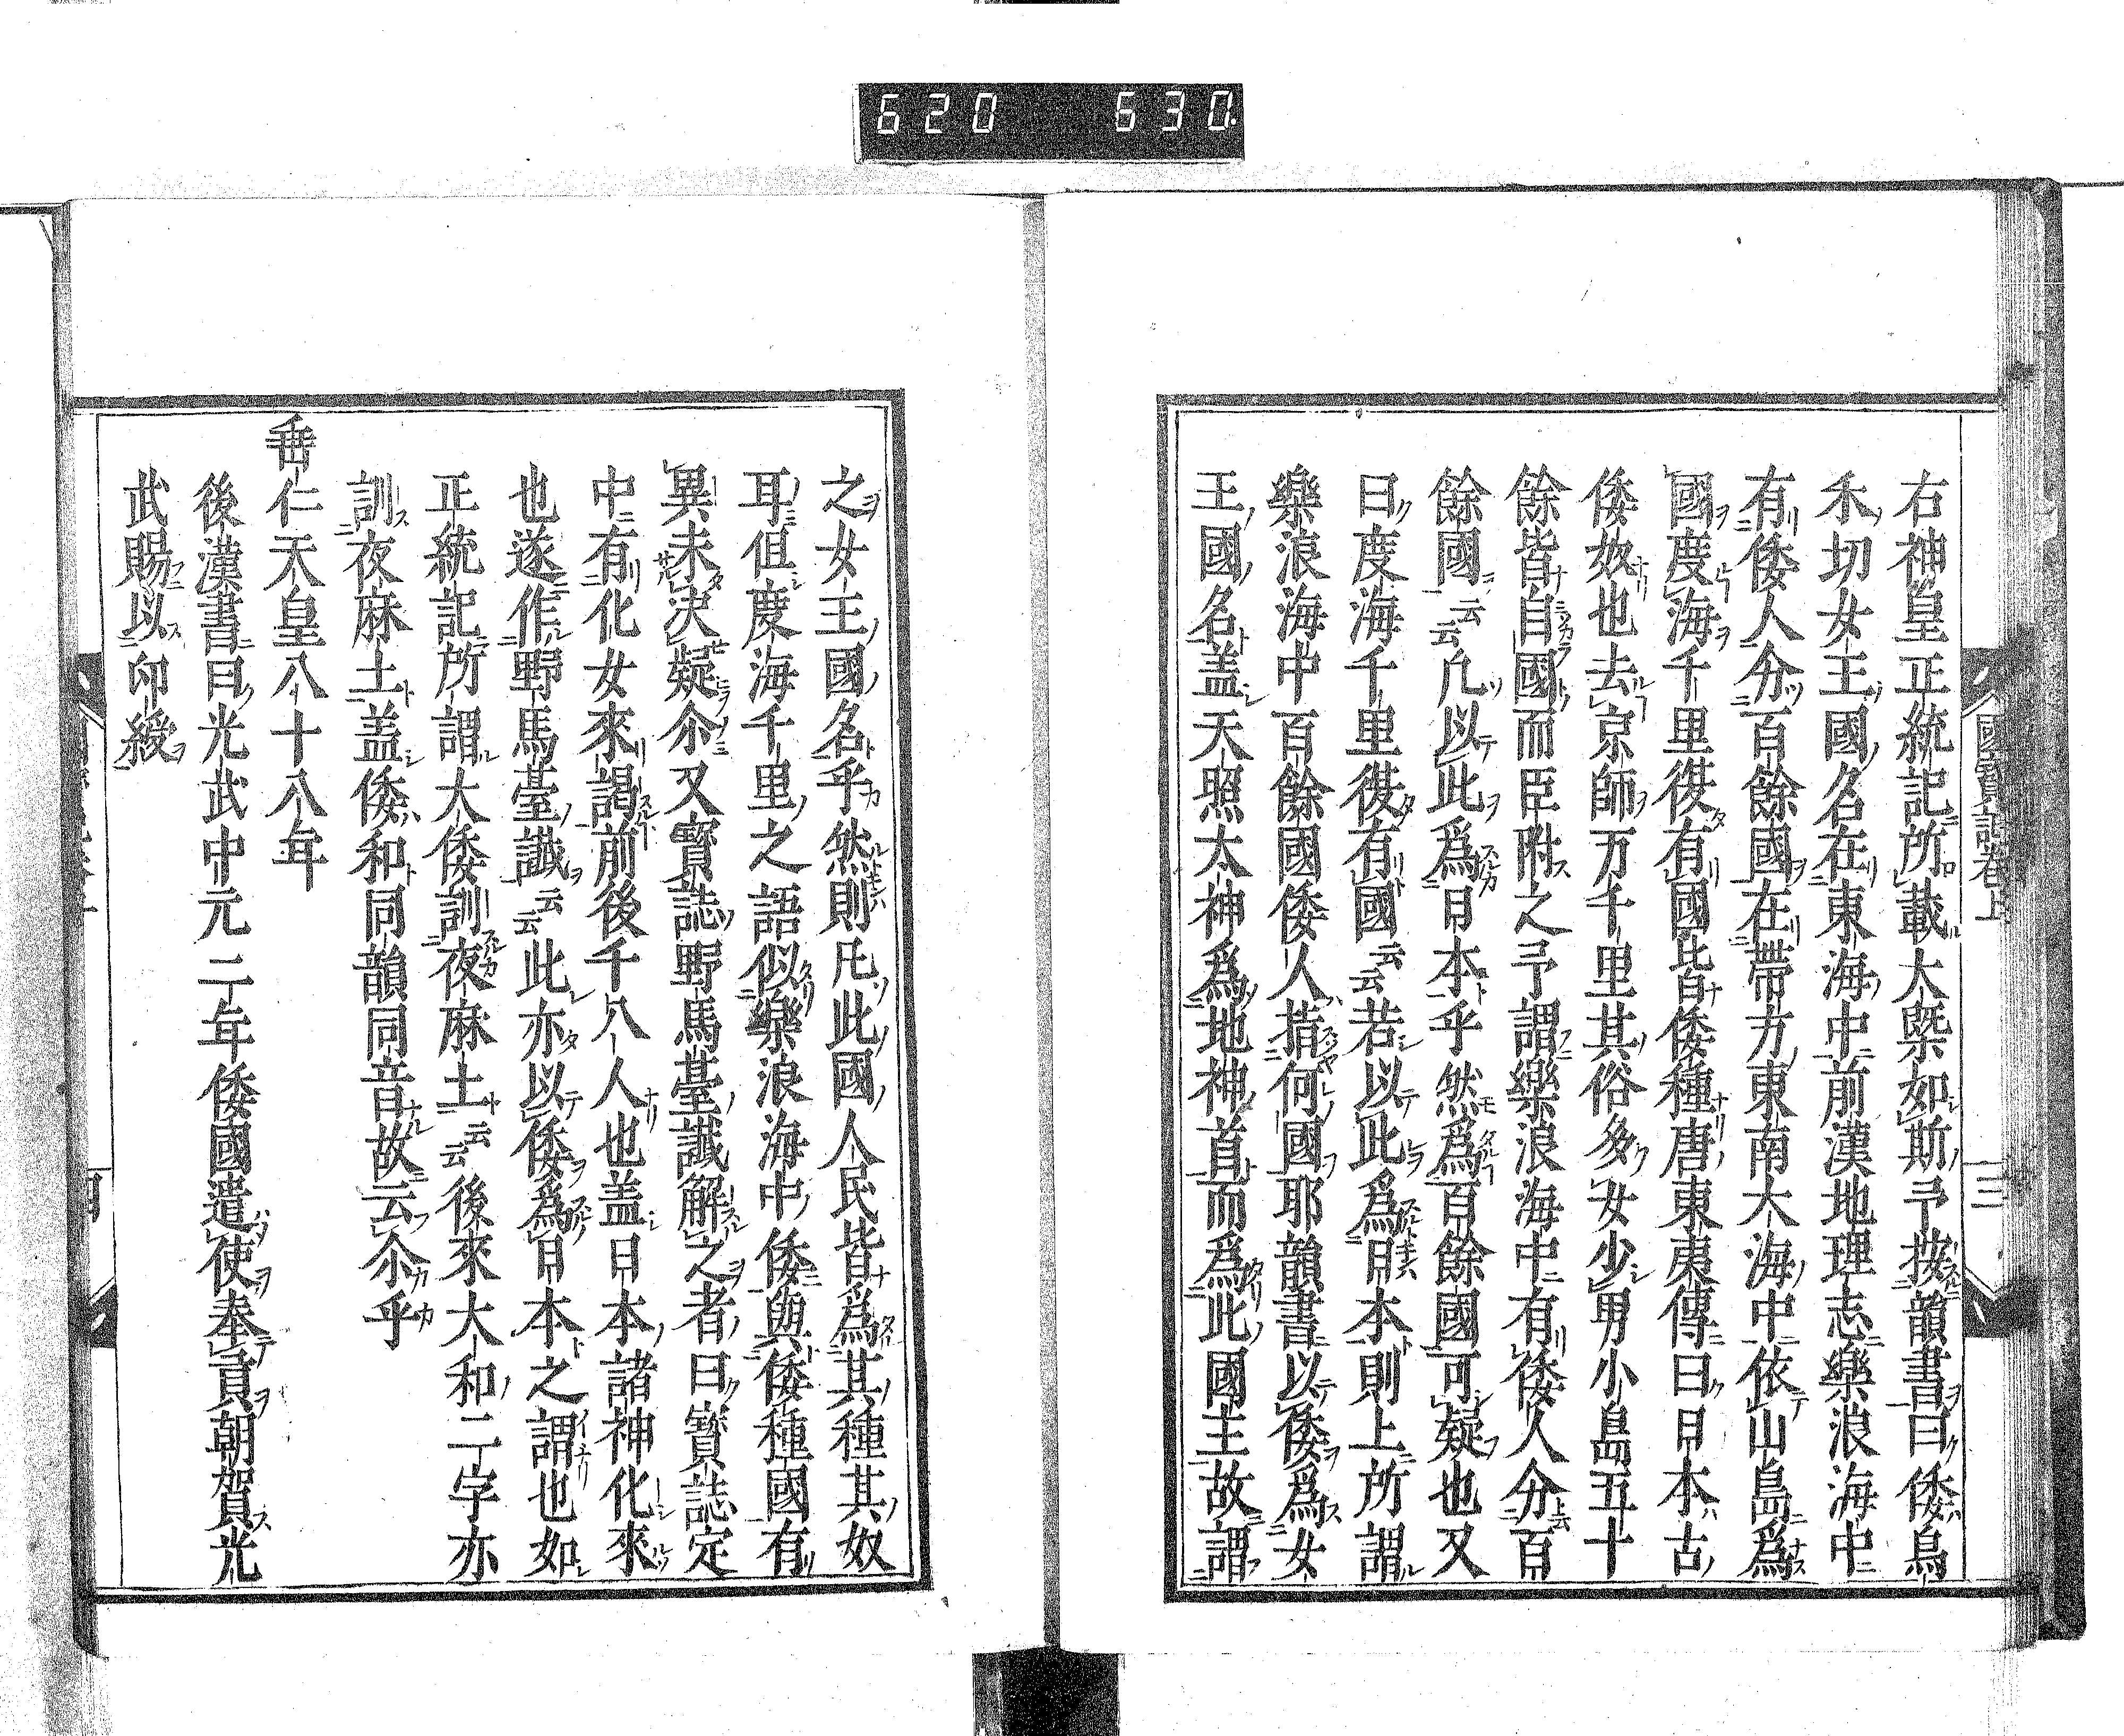 620 630
國寶記卷上
三
右神皇正統記所載大槩如斯予按韻書曰倭烏
禾切女王國名在東海中前漢地理志樂浪海中
有倭人分百餘國在帶方東南大海中依山島爲
國度海千里復有國皆倭種唐東夷傳曰日本古
倭奴也去京師万千里其俗多女少男小島五十
餘皆自國而臣附之予謂樂浪海中有倭人分百
餘國云云凢以此爲日本乎然爲百餘國可疑也又
曰度海千里復有國云云若以此爲日本則上所謂
樂浪海中百餘國倭人指何國耶韻書以倭爲女
王國名盖天照太神爲地神首而爲此國主故謂
之女王國名乎然則凡此國人民皆爲其種其奴
耳但度海千里之語似樂浪海中倭與倭種國有
異未决疑尒又寶誌野馬臺讖解之者曰寶誌定
中有化女來謁前後千八人也盖日本諸神化來
也遂作野馬臺讖云云此亦以倭爲日本之謂也如
正統記所謂大倭訓夜麻土云云後來大和二字亦
訓夜麻土盖倭和同韻同音故云尒乎
垂仁天皇八十八年
後漢書曰光武中元二年倭國遣使奉貢朝賀光
武賜以印綬
四